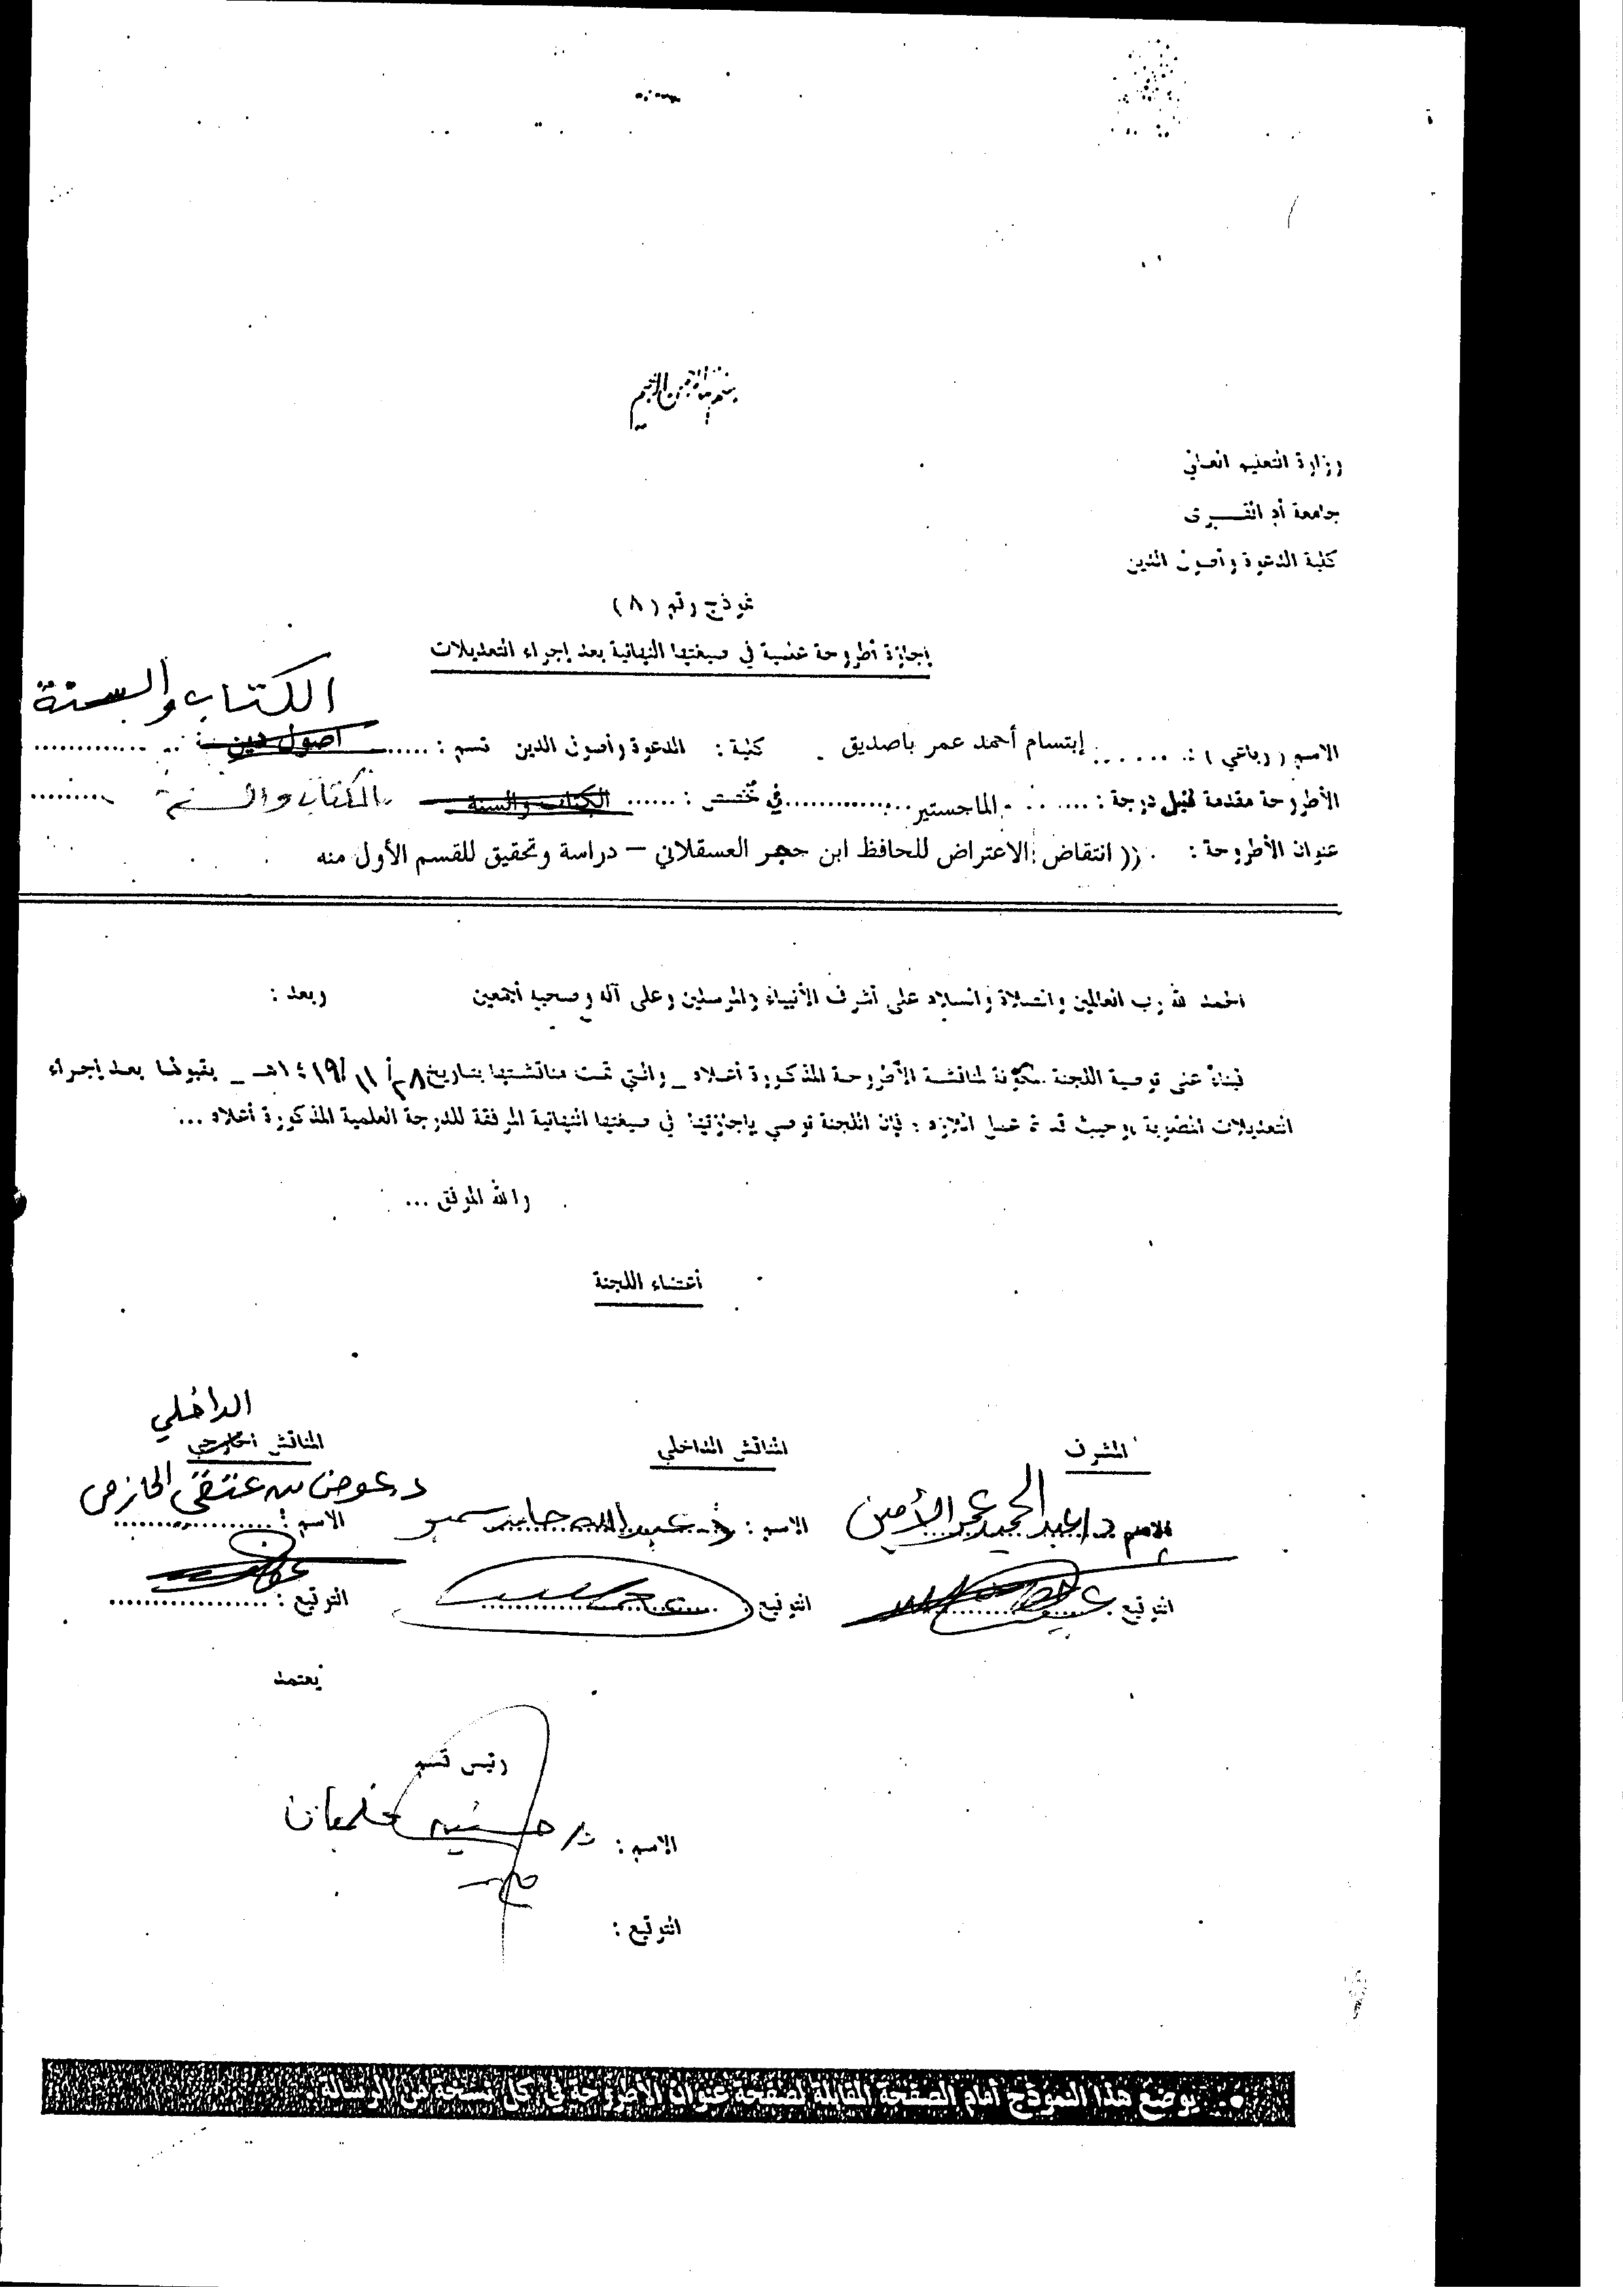 بسم الله الرحمن الرحيم
وزارة التعليم العالي
جامعة أم القــــرى
كلية الدعوة وأصول الدين
نموذج رقم (٨)
إجازة أطروحة علمية في صيغتها النهائية بعد إجراء التعديلات
الكتاب والسنة
الاسم (رباعي) : ...... إبتسام أحمد عمر باصديق . كلية : الدعوة وأصول الدين قسم : ...... أصول دين ............
الأطروحة مقدمة لنيل درجة : ...... الماجستير ............ في تخصص : ...... الكتاب والسنة الكتاب والسنة .........
عنوان الأطروحة : . (( انتقاض الاعتراض للحافظ ابن حجر العسقلاني – دراسة وتحقيق للقسم الأول منه
الحمد لله رب العالمين والصلاة والسلام على أشرف الأنبياء والمرسلين وعلى آله وصحبه أجمعين وبعد :
فبناءً على توصية اللجنة المكونة لمناقشة الأطروحة المذكورة أعلاه _ والتي تمت مناقشتها بتاريخ ٢٨ / ١١ / ١٤١٩هـ _ بقبولها بعد إجراء
التعديلات المطلوبة ، وحيث قد تم عمل اللازم ؛ فإن اللجنة توصي بإجازتها في صيغتها النهائية المرفقة للدرجة العلمية المذكورة أعلاه ...
والله الموفق ...
أعضاء اللجنة
الداخلي
المشرف المناقش الداخلي المناقش الخارجي
الاسم د/ عبد الحميد عمر الأمين الاسم : د. عبد الله حامد الاسم : د. عوض عتقي الحازمي
التوقيع التوقيع : التوقيع : ..................
يعتمد
رئيس قسم
الاسم : د/ حلمان
التوقيع :
يوضع هذا النموذج أمام الصفحة المقابلة لصفحة عنوان الأطروحة في كل نسخة من الرسالة